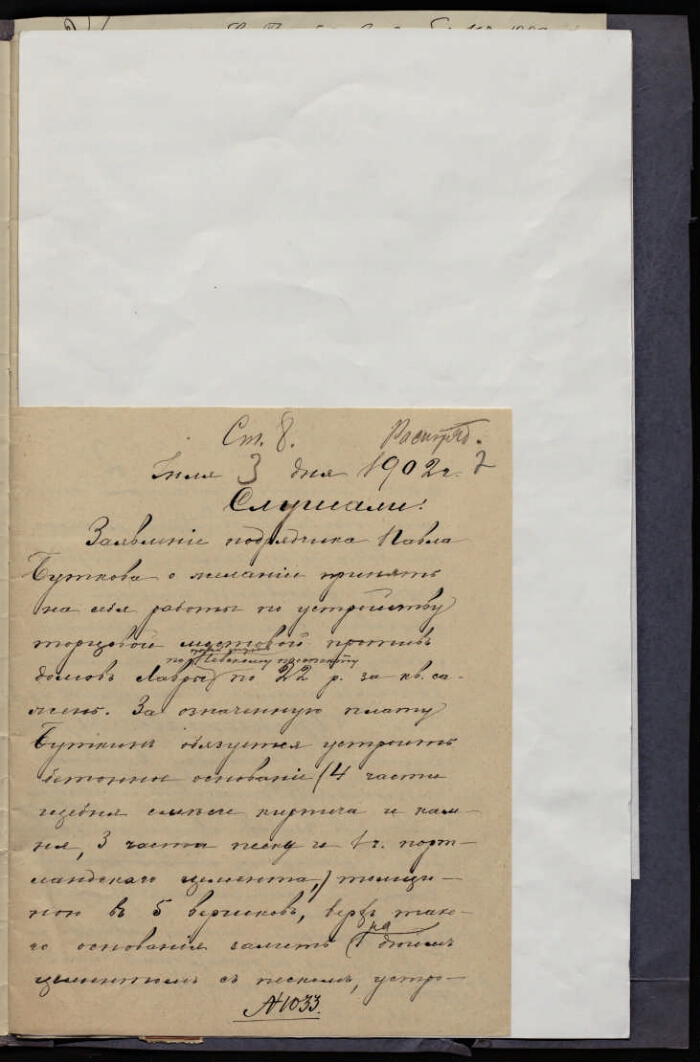 Ст. 8. Распоряд.
Іюля 3 дня 1902 г.
Слушали:
Заявленіе подрядчика Павла
Буткова о желаніи принять
на себя работы по устройству
торцовой мостовой противъ
по Невскому проспекту
домовъ Лавры по 22 р. за кв. са-
жень. За означенную плату
Буткинъ обязуется устроить
бетонное основаніе (4 части
щебня смѣси кирпича и кам-
ня, 3 части песку и 1 ч. порт-
ландскаго цемента,) толщи-
ною въ 5 вершковъ, верхъ тако-
го основанія залить на
1 дюймъ
цементомъ съ пескомъ, устро-
№1033.